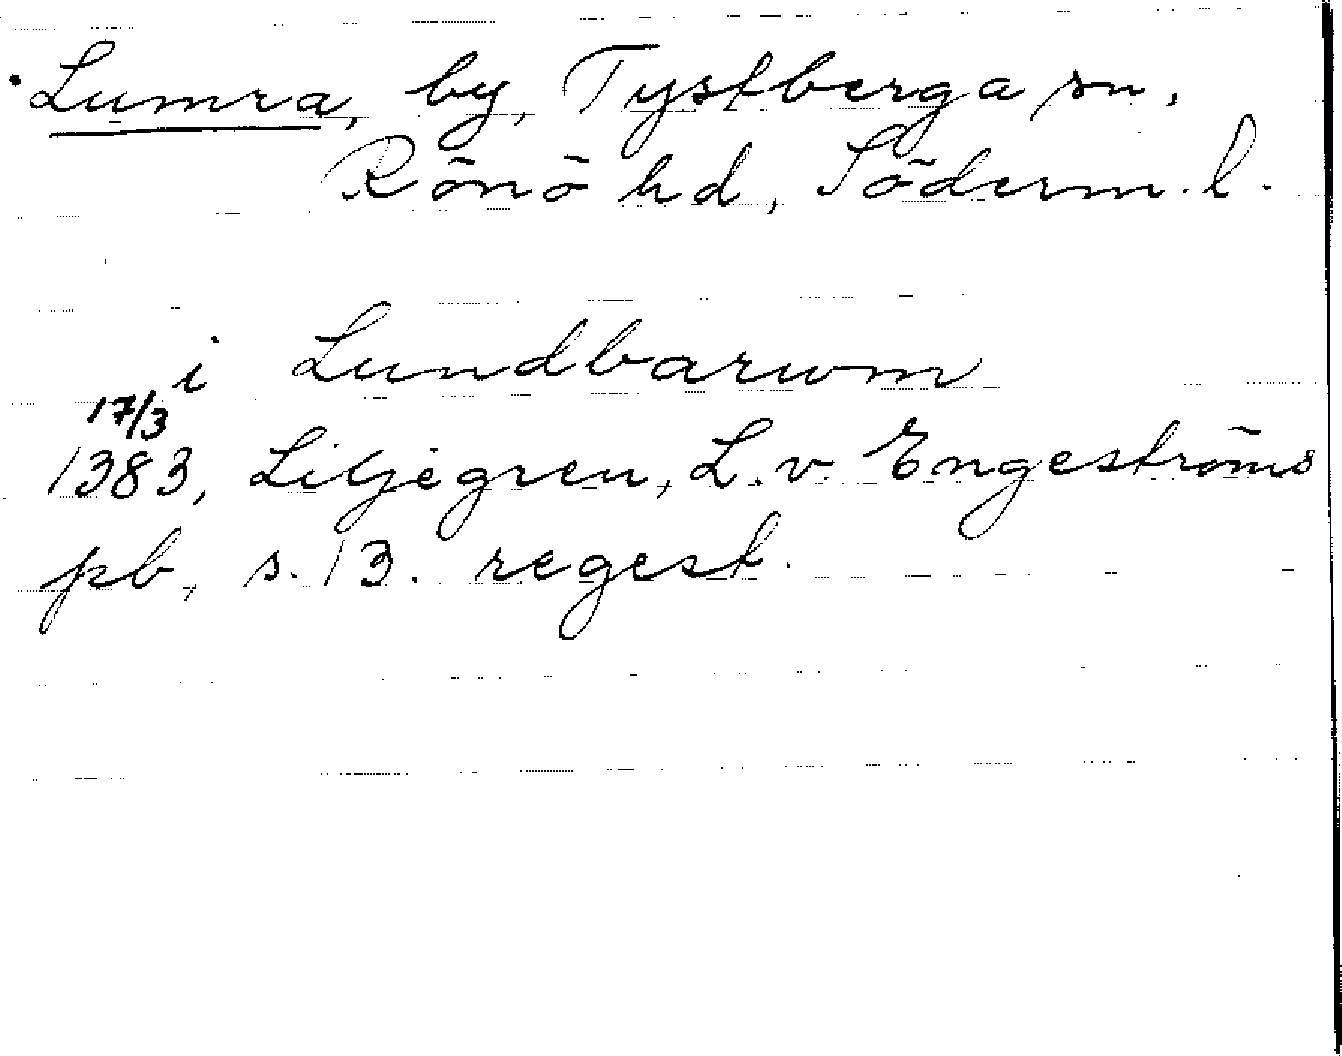 Lumra, by, Tystberga sn,
Rönö hd, Söderm. l.
i Lundbarwm
17/3
1383, Liljegren, L. v. Engeströms
pb, s. 13. regest.